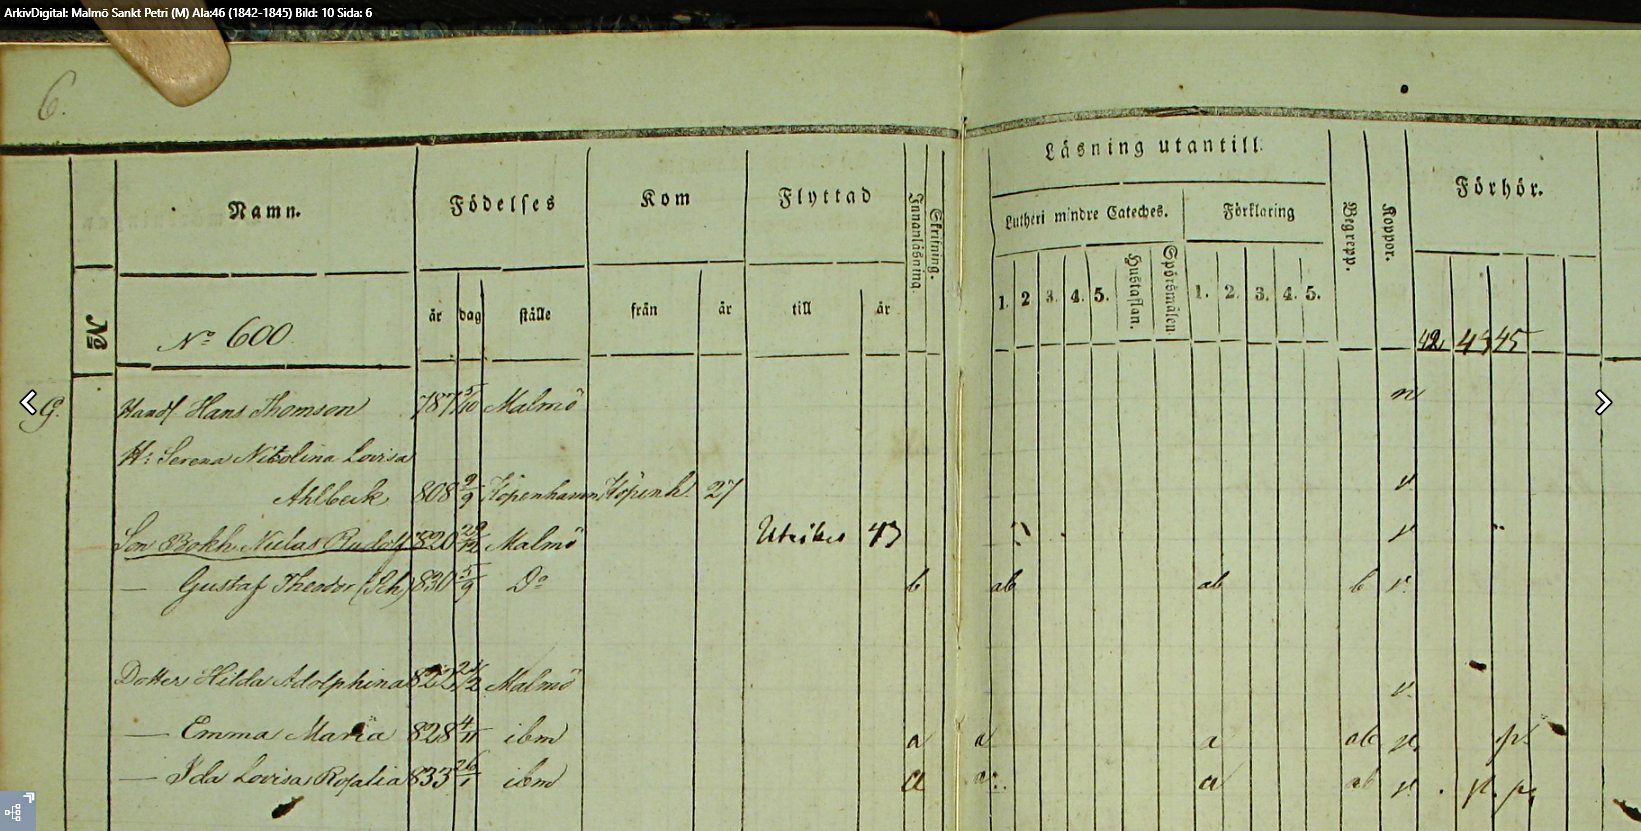 ArkivDigital: Malmö Sankt Petri (M) AIa:46 (1842-1845) Bild: 10 Sida: 6
6.
Läsning utantill.
Namn. Födelses Kom Flyttad Innanläsning. Skrifning. Lutheri mindre Cateches. Förklaring Begrepp. Koppor. Förhör.
№ år dag ställe från år till år 1. 2 3. 4. 5. Hustaflan. Spörsmålen. 1. 2. 3. 4. 5.
No 600 42 43 45
G. Handl Hans Thomson 787 5/10 Malmö n
H: Serena Nicolina Lovisa
Ahlbeck 808 9/9 Köpenhamn Köpenh. 27 v.
Son Bokh. Niclas Rudolf 820 29/12 Malmö Utrikes 43 v
— Gustaf Theodor 830 5/9 Do b ab ab b v.
Dotter Hilda Adolphina Malmö v.
— Emma Maria 828 4/11 ibm a a a ab v. p.
— Ida Lovisa Rosalia 833 26/1 ibm a a a ab v. p. p.